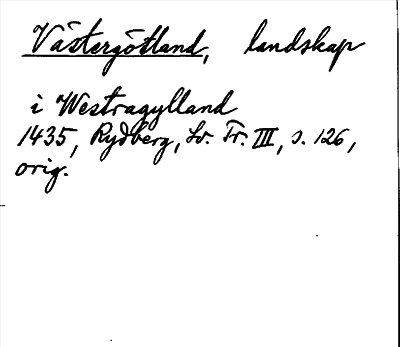 Västergötland, landskap
i Westragylland
1435, Rydberg, Sv. Tr. III, s. 126,
orig.